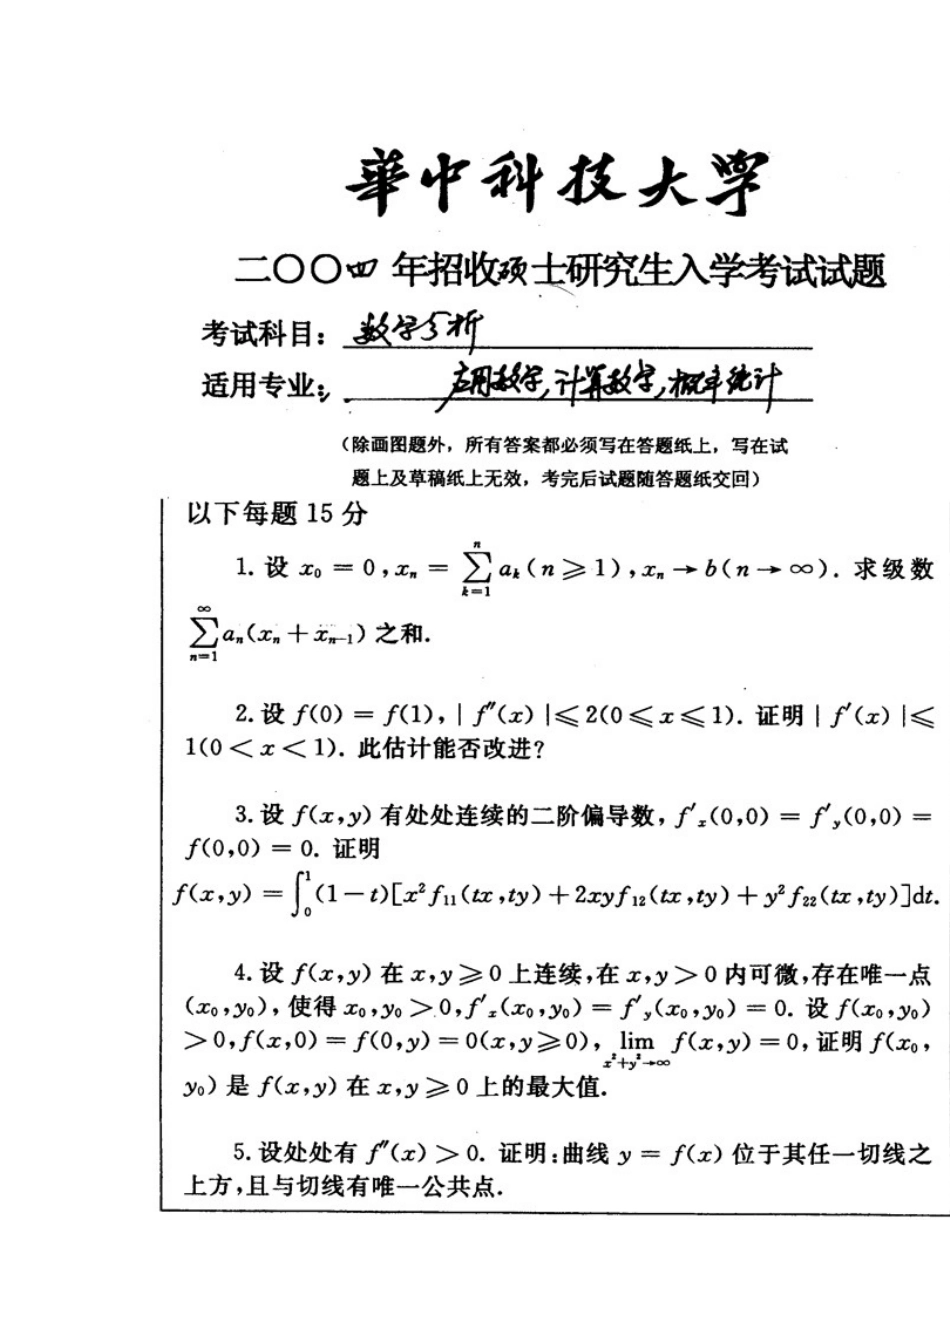 華中科技大学
二〇〇四 年招收硕士研究生入学考试试题
考试科目: 数学分析
适用专业: 应用数学,计算数学,概率统计
(除画图题外,所有答案都必须写在答题纸上,写在试
题上及草稿纸上无效,考完后试题随答题纸交回)
以下每题 15 分
1. 设 x₀ = 0, xₙ = ∑_{k=1}^{n} aₖ (n ⩾ 1), xₙ → b (n → ∞). 求级数
∑_{n=1}^{∞} aₙ(xₙ + xₙ₋₁) 之和.
2. 设 f(0) = f(1), | f″(x) | ⩽ 2(0 ⩽ x ⩽ 1). 证明 | f′(x) | ⩽
1(0 < x < 1). 此估计能否改进?
3. 设 f(x,y) 有处处连续的二阶偏导数, f′ₓ(0,0) = f′ᵧ(0,0) =
f(0,0) = 0. 证明
f(x,y) = ∫₀¹ (1 − t)[x² f₁₁(tx,ty) + 2xyf₁₂(tx,ty) + y² f₂₂(tx,ty)]dt.
4. 设 f(x,y) 在 x,y ⩾ 0 上连续,在 x,y > 0 内可微,存在唯一点
(x₀,y₀), 使得 x₀,y₀ > 0, f′ₓ(x₀,y₀) = f′ᵧ(x₀,y₀) = 0. 设 f(x₀,y₀)
> 0, f(x,0) = f(0,y) = 0(x,y ⩾ 0), lim_{x²+y²→∞} f(x,y) = 0, 证明 f(x₀,
y₀) 是 f(x,y) 在 x,y ⩾ 0 上的最大值.
5. 设处处有 f″(x) > 0. 证明:曲线 y = f(x) 位于其任一切线之
上方,且与切线有唯一公共点.